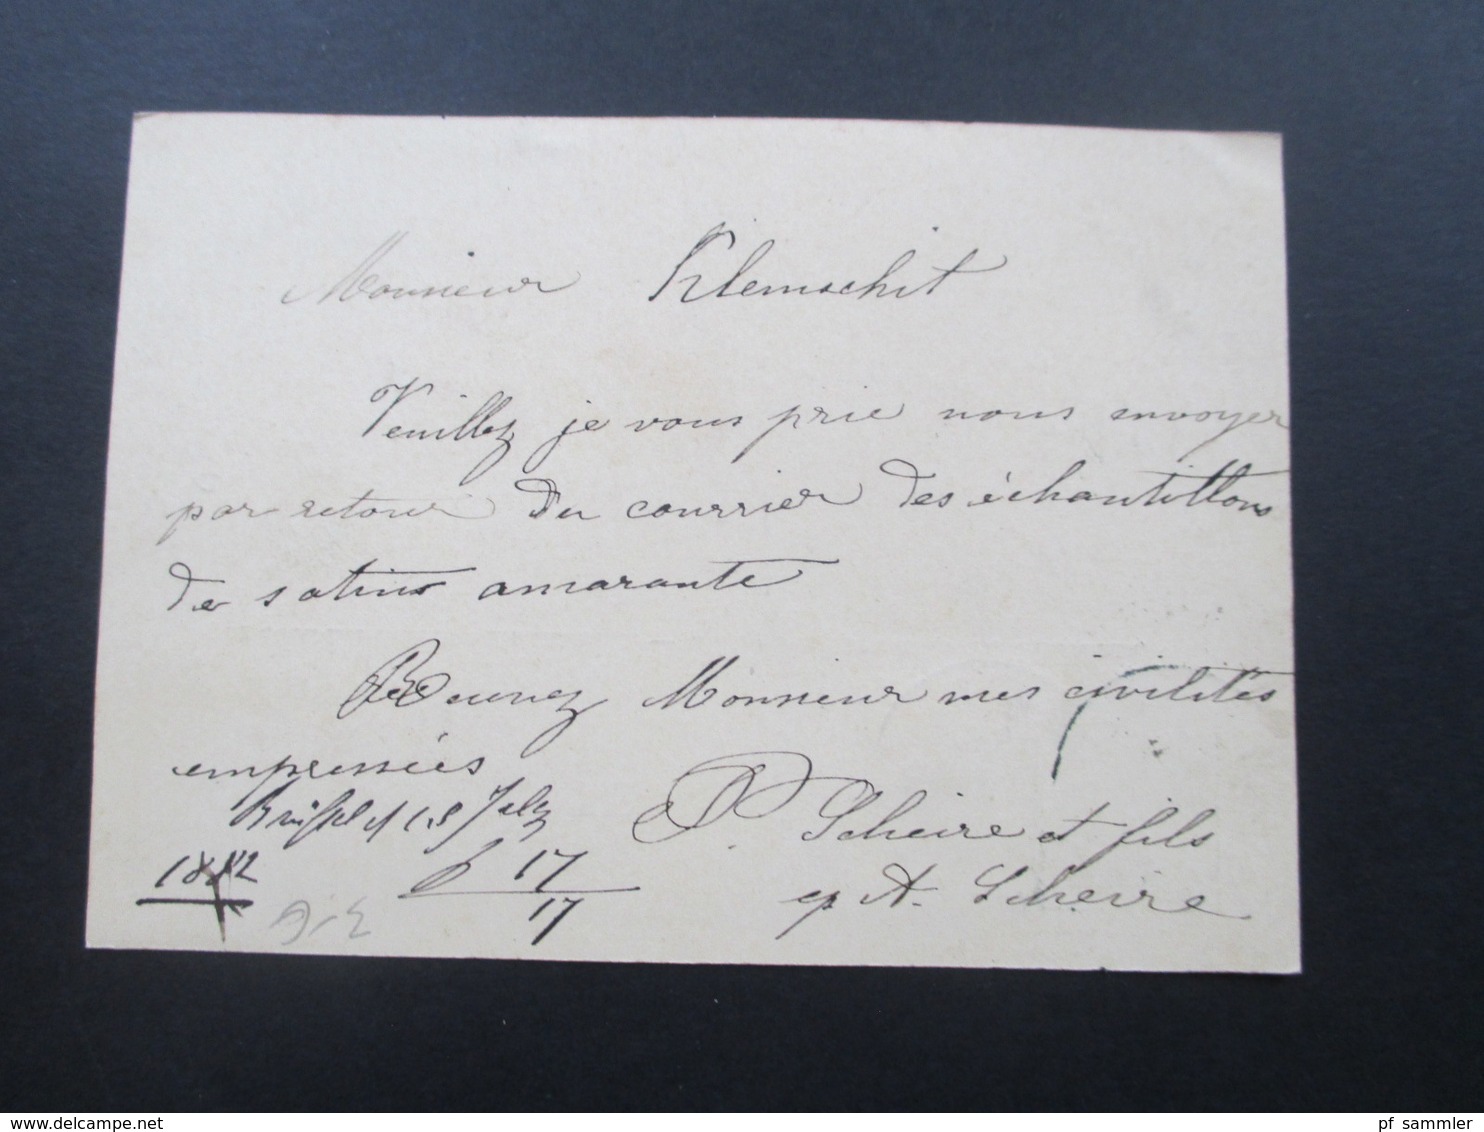 Monsieur Klemschit
Veuillez je vous prie nous envoyer
par retour du courrier des échantillons
de satins amarante
Recevez Monsieur mes civilités
empressées
P. Scheire et fils
A. Scheire
1882
17
17
delcampe.net
pf_sammler